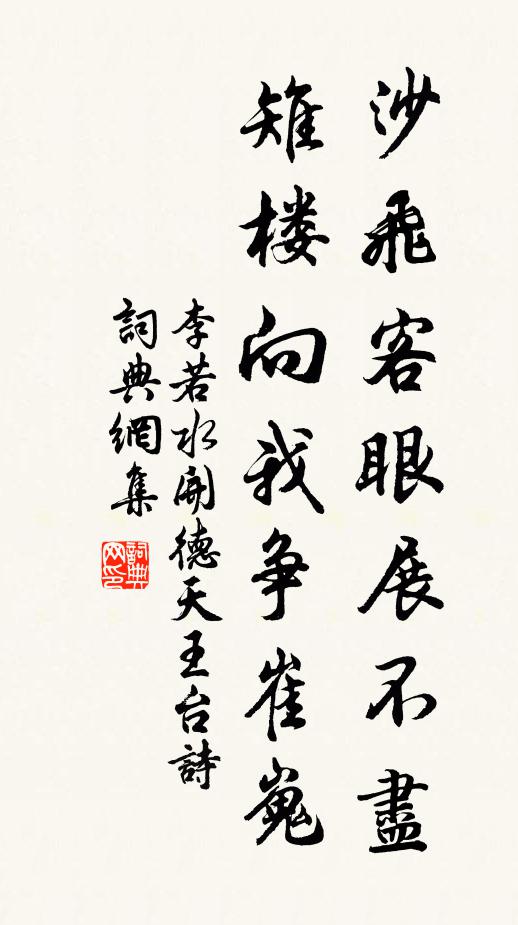 沙飛客眼展不盡
雉楼向我争崔嵬
李若水開德天王台詩
詞典網集
詞典网印